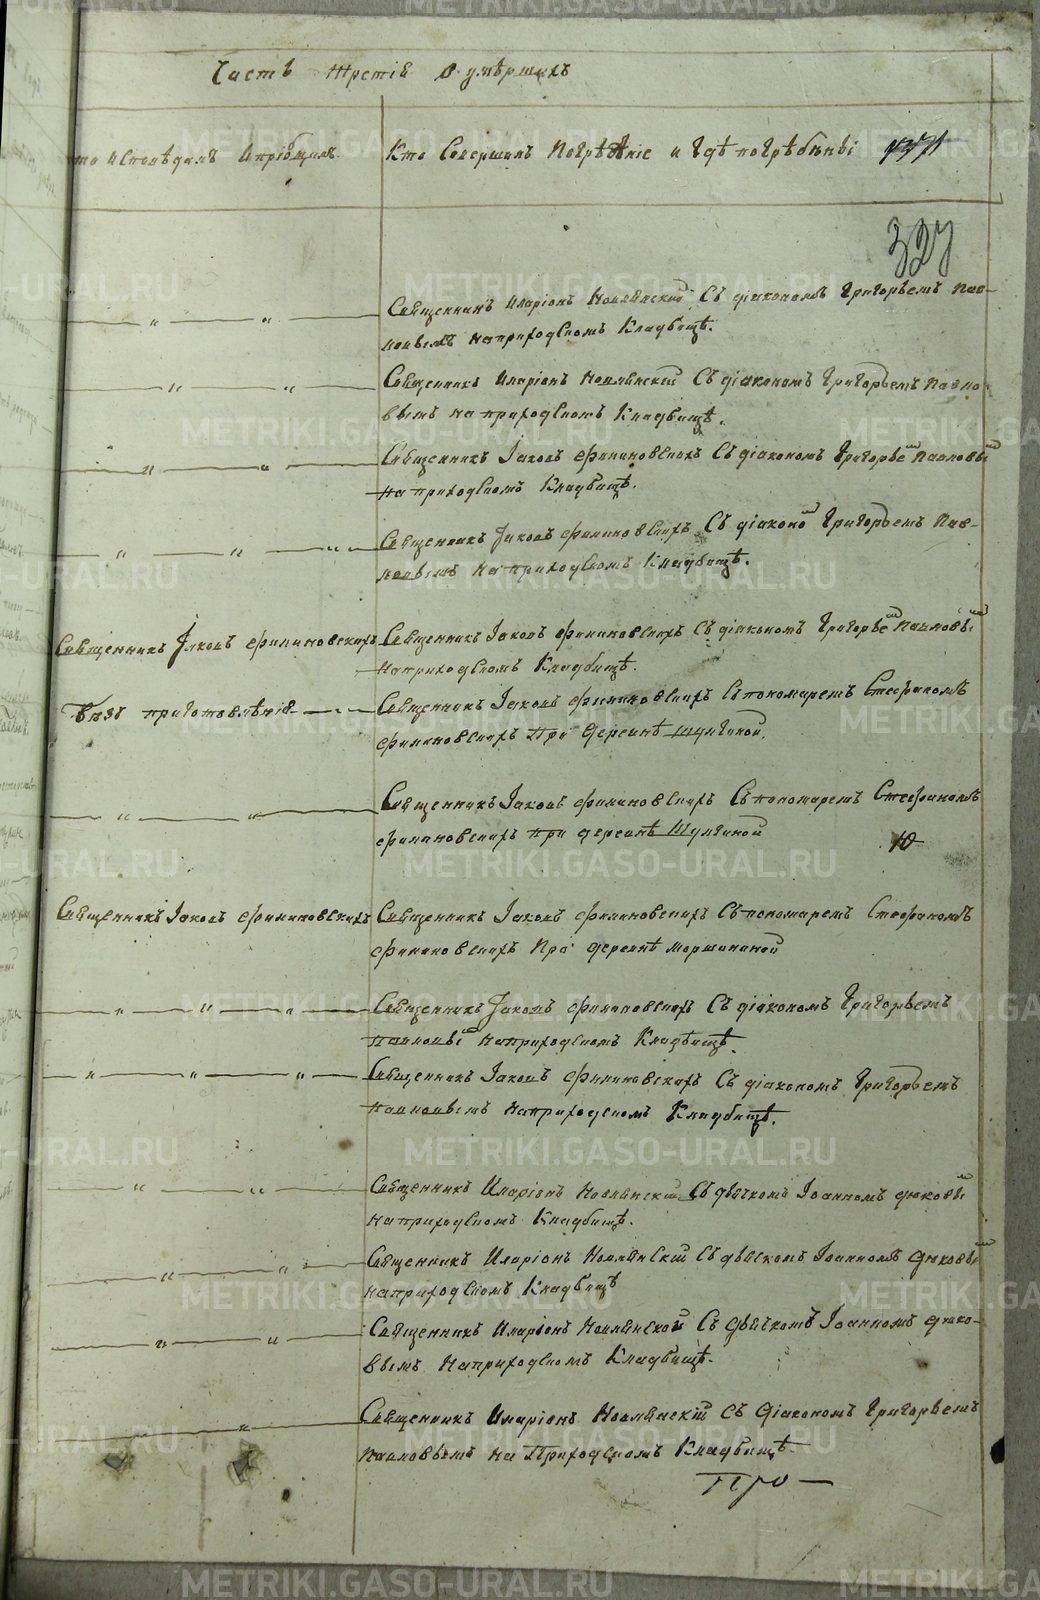 Часть третія о умѣршихъ
то исповѣдалъ и пріобщалъ
Кто Совершалъ Погрѣбѣніе и гдѣ погрѣбѣнъі
327
Священникъ Иларіонъ Ноал Съ діакономъ Григорьемъ Пав-
ловымъ на приходскомъ Кладбищѣ.
Священникъ Иларіонъ Съ діакономъ Григорьемъ Павло-
вымъ на приходскомъ Кладбищѣ.
Священникъ Іаковъ Филиповскихъ Съ діакономъ Григорьемъ Павловы
на приходскомъ Кладбищѣ.
Священникъ Іаковъ Филиновскихъ Съ діаконо Григорьемъ Пав-
ловымъ на приходскомъ Кладбищѣ.
Священникъ Іаковъ Филиновскихъ
Священникъ Іаковъ Филиновскихъ Съ діакономъ Григорье Павловы
на приходскомъ Кладбищѣ.
Безъ приготовлѣнія
Священникъ Іаковъ Филиновскихъ Съ пономаремъ Стефаномъ
Филиновскихъ При деревнѣ Шулгиной.
Священникъ Іаковъ Филиновскихъ Съ пономаремъ Стефаномъ
Филиновскихъ при деревнѣ Шулгиной
10
Священникъ Іаковъ Филиновскихъ
Священникъ Іаковъ Филиновскихъ Съ пономаремъ Стефаномъ
Филиновскихъ При деревнѣ Моршининой
Священникъ Іаковъ Филиновскихъ Съ діакономъ Григорьемъ
Павловы на приходскомъ Кладбищѣ.
Священникъ Іаковъ Филиновскихъ Съ діакономъ Григорьемъ
Павловымъ на приходскомъ Кладбищѣ.
Священникъ Иларіонъ Съ дьячкомъ Іоанномъ Дюковы
на приходскомъ Кладбищѣ.
Священникъ Иларіонъ Съ дьячкомъ Іоанномъ Дюковы
на приходскомъ Кладбищѣ
Священникъ Иларіонъ Съ дьячкомъ Іоанномъ Дюко-
вымъ на приходскомъ Кладбищѣ.
Священникъ Иларіонъ Съ Діакономъ Григорьемъ
Павловымъ на Приходскомъ Кладбищѣ.
Про-
METRIKI.GASO-URAL.RU